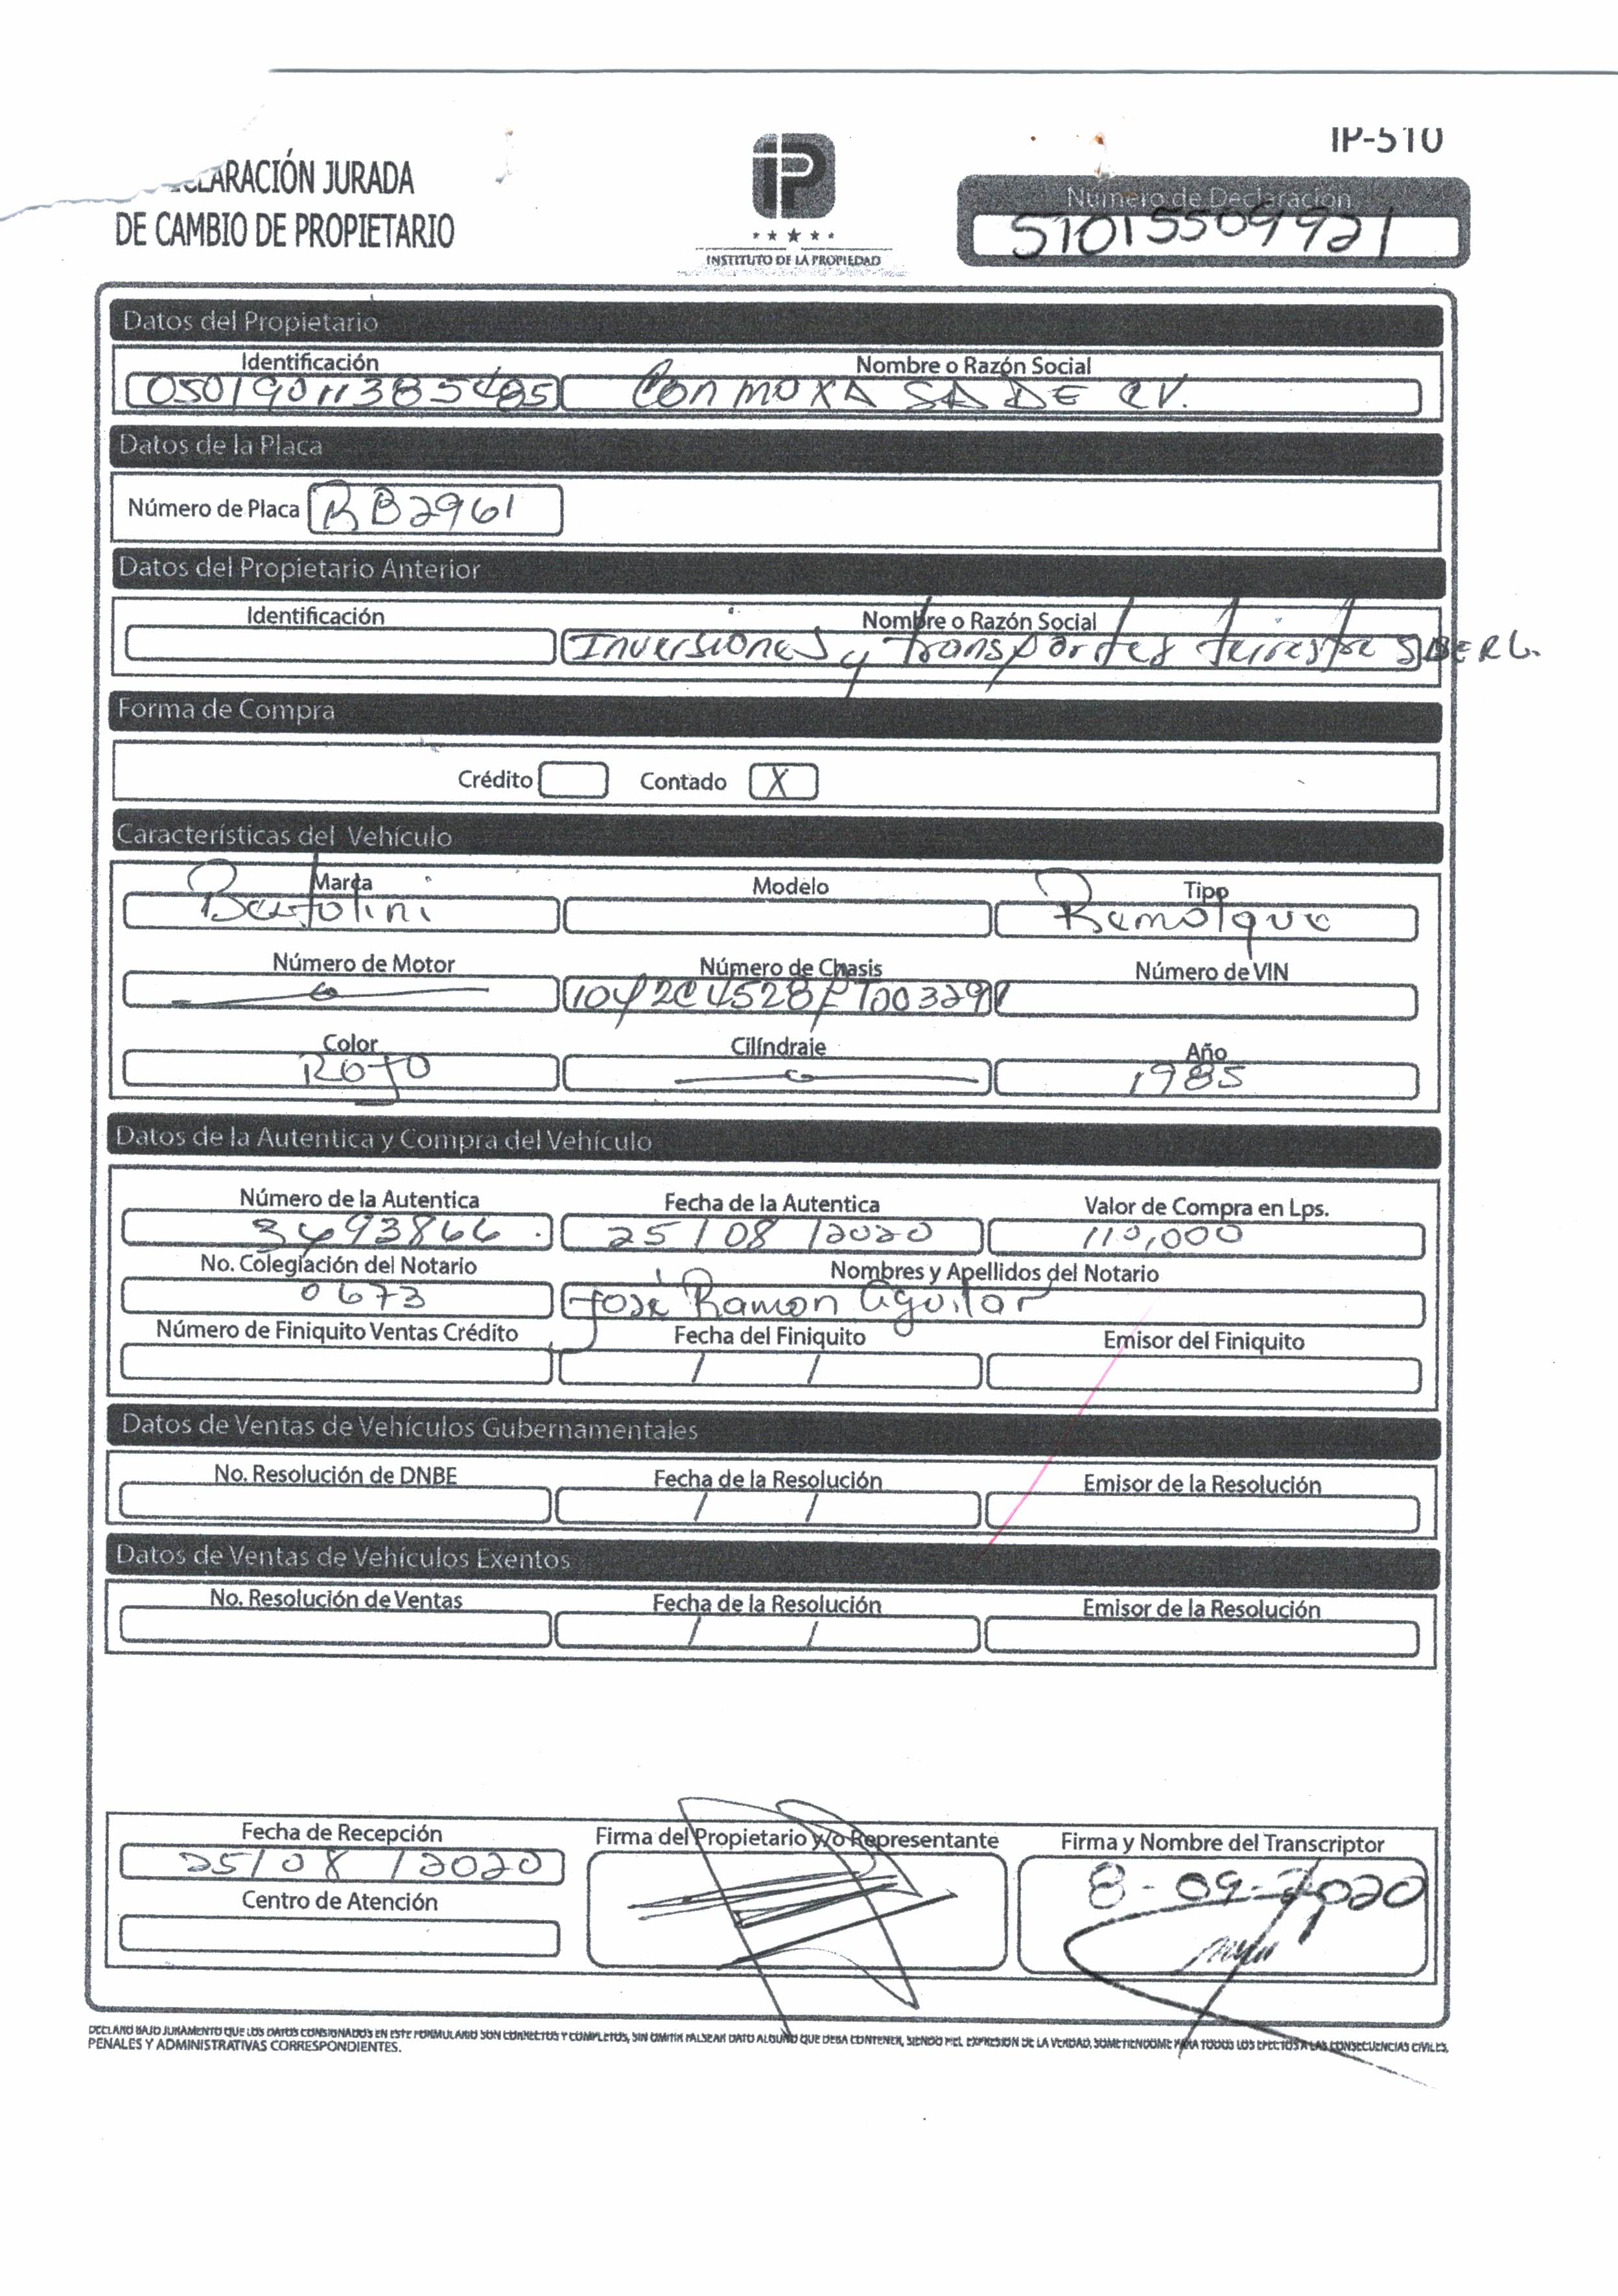 IP-510
CLARACIÓN JURADA
DE CAMBIO DE PROPIETARIO
IP
INSTITUTO DE LA PROPIEDAD
Número de Declaración
51015509921
Datos del Propietario
Identificación Nombre o Razón Social
05019011385485 Conmoxa SA DE CV.
Datos de la Placa
Número de Placa RB2961
Datos del Propietario Anterior
Identificación Nombre o Razón Social
Inversiones y transportes terrestre SDERL.
Forma de Compra
Crédito Contado X
Características del Vehículo
Marca Modelo Tipo
Bertolini Remolque
Número de Motor Número de Chasis Número de VIN
Color Cilíndraje Año
Rojo 1985
Datos de la Autentica y Compra del Vehículo
Número de la Autentica Fecha de la Autentica Valor de Compra en Lps.
3493866 25/08/2020 110,000
No. Colegiación del Notario Nombres y Apellidos del Notario
0673 José Ramon Aguilar
Número de Finiquito Ventas Crédito Fecha del Finiquito Emisor del Finiquito
/ /
Datos de Ventas de Vehículos Gubernamentales
No. Resolución de DNBE Fecha de la Resolución Emisor de la Resolución
/ /
Datos de Ventas de Vehículos Exentos
No. Resolución de Ventas Fecha de la Resolución Emisor de la Resolución
/ /
Fecha de Recepción Firma del Propietario y/o Representante Firma y Nombre del Transcriptor
25/08/2020 8-09-2020
Centro de Atención
DECLARO BAJO JURAMENTO QUE LOS DATOS CONSIGNADOS EN ESTE FORMULARIO SON CORRECTOS Y COMPLETOS, SIN OMITIR FALSEAR DATO ALGUNO QUE DEBA CONTENER, SIENDO FIEL EXPRESION DE LA VERDAD, SOMETIENDOME PARA TODOS LOS EFECTOS A LAS CONSECUENCIAS CIVILES,
PENALES Y ADMINISTRATIVAS CORRESPONDIENTES.